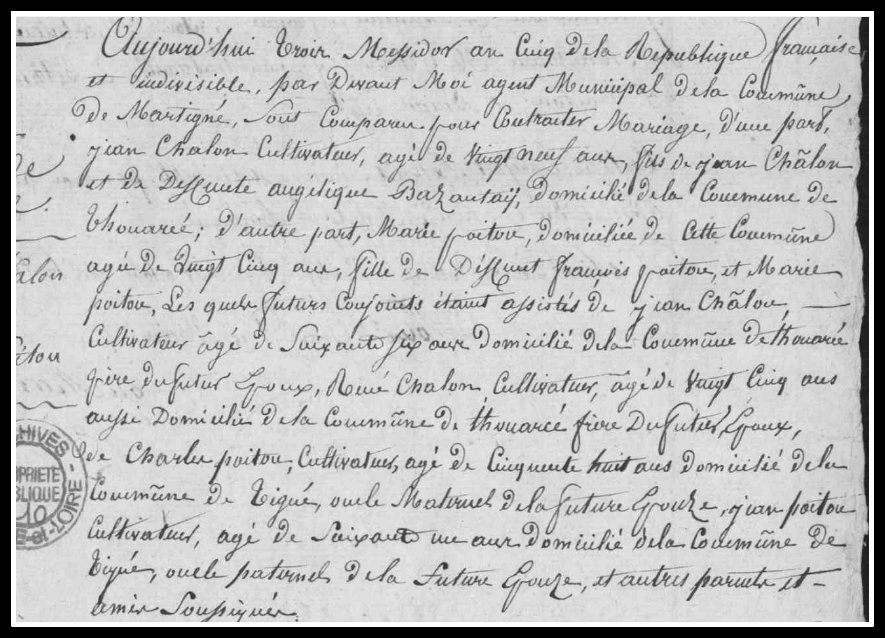 Aujourd'hui troir Messidor an Cinq de la Republique française
et indivisible, par Devant Moi agent Municipal de la Commũne
de Martigné, sont Comparu pour Contracter Mariage, d'une part,
jean Chalon Cultivateur, agé de Vingt neuf anr, fils de jean Chãlon
et de Deffunte angélique Bazantaÿ, domicilié de la Commune de
thouarcé; d'autre part, Marie poitou, domiciliée de Cette Commũne
agée de Vingt Cinq anr, fille de Déffunt françois poitou, et Marie
poitou, Les quelr futurs Conjoints étant assistés de jean Chãlon
Cultivateur ãgé de Soixante six anr domicilié de la Commũne de thouarcé
père du futur Epoux, René Chalon Cultivateur, ãgé de Vingt Cinq ans
aussi Domicilié de la Commũne de thouarcé frère Du futur Epoux,
de Charler poitou, Cultivateur, agé de Cinquente huit ans domicilié de la
Commũne de Tigné, oncle Maternel de la future Epouze, jean poitou
Cultivateur, agé de Soixante un anr domicilié de la Commũne de
Tigné, oncle paternel de la Future Epouze, et autres parentr et
amir Soussignér.
Chalon
poitou
ARCHIVES
PROPRIETE
PUBLIQUE
10
-et-LOIRE